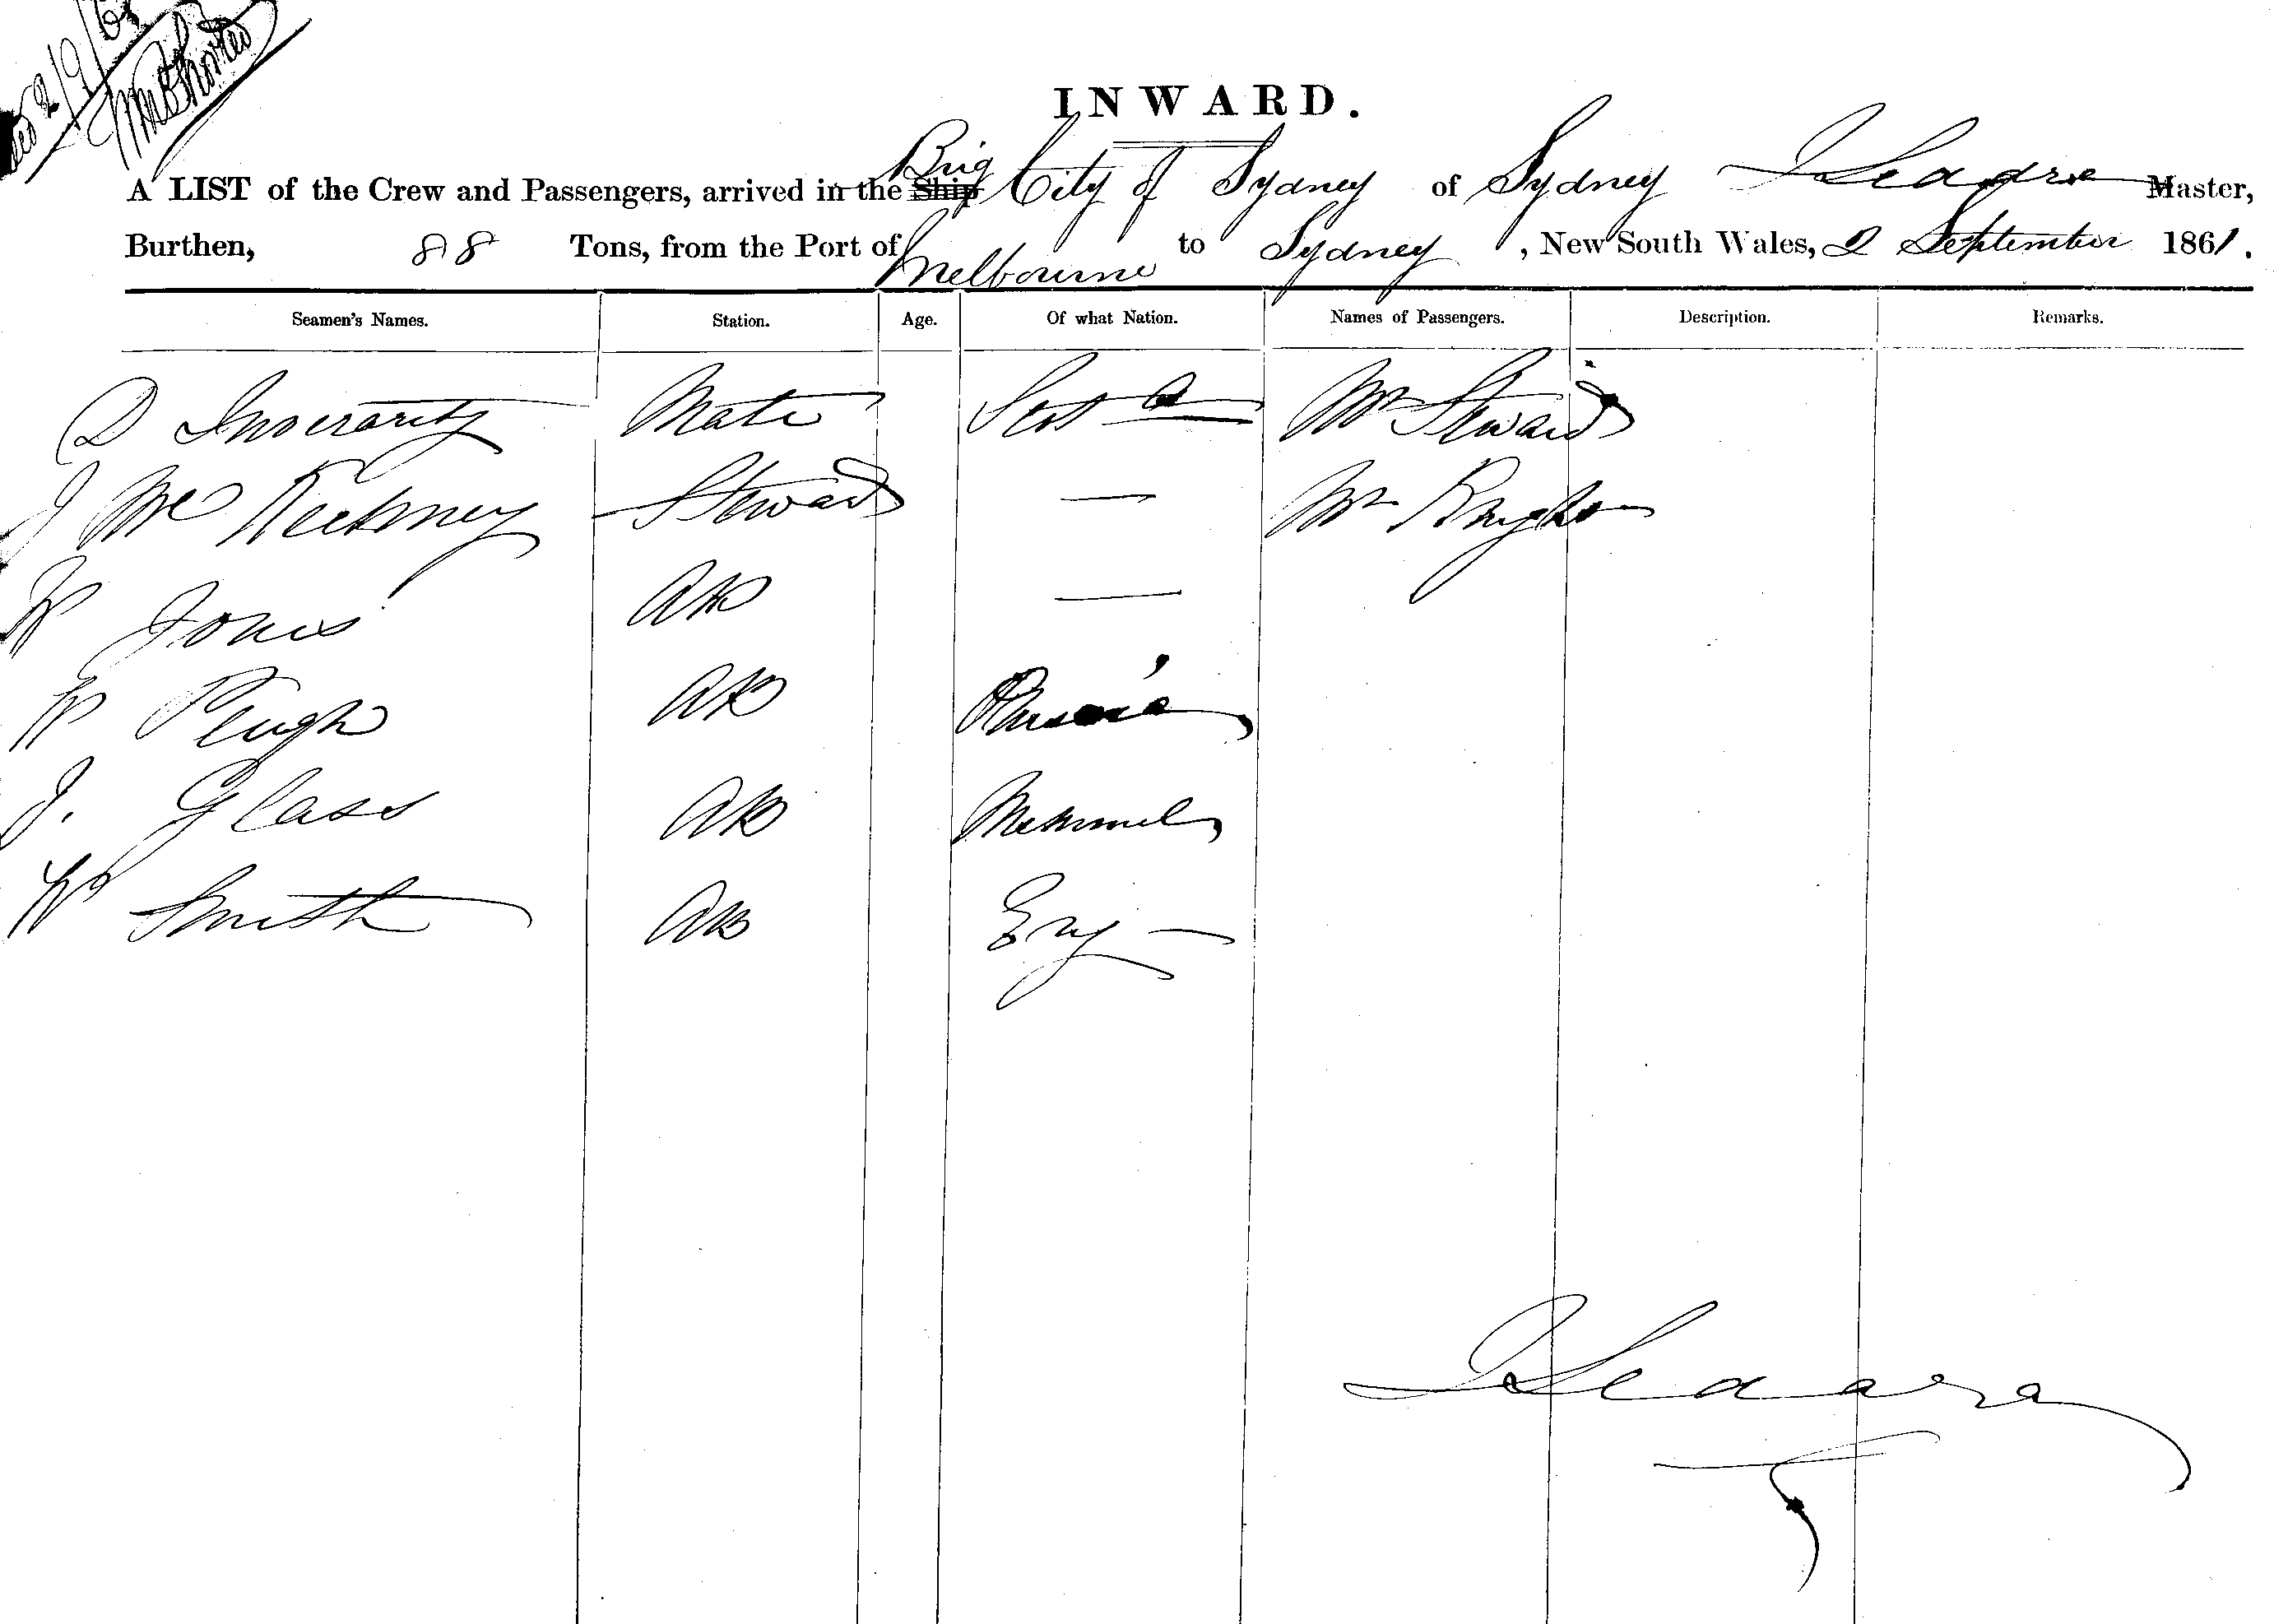 2/9/61
INWARD.
A LIST of the Crew and Passengers, arrived in the Ship Brig City of Sydney of Sydney Master,
Burthen, 88 Tons, from the Port of Melbourne to Sydney, New South Wales, 2 September 1861.
Seamen's Names. Station. Age. Of what Nation. Names of Passengers. Description. Remarks.
D Inverarity Mate Scot Mr Steward
J Mc Steward — Mr
W Jones AB —
W Pengh AB
J. Glass AB Memmel
W Smith AB Eng —